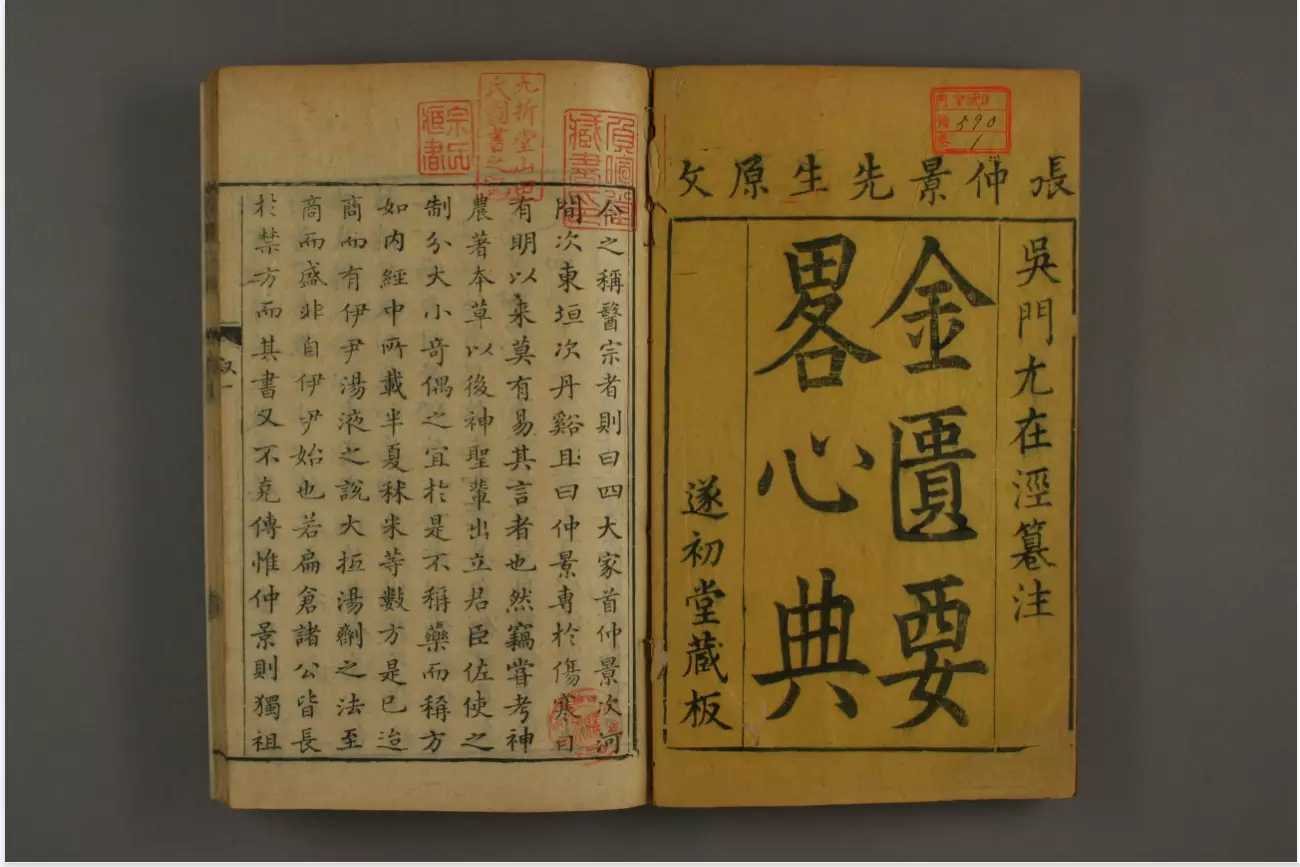 張仲景先生原文
吳門尤在涇纂注
金匱要
畧心典
遂初堂藏板
590
1
今之稱醫宗者則曰四大家首仲景次河
間次東垣次丹谿且曰仲景專於傷寒自
有明以来莫有易其言者也然竊嘗考神
農著本草以後神聖輩出立君臣佐使之
制分大小奇偶之宜於是不稱藥而稱方
如内經中所載半夏秫米等數方是已迨
商而有伊尹湯液之說大抵湯劑之法至
商而盛非自伊尹始也若扁倉諸公皆長
於禁方而其書又不克傳惟仲景則獨祖
藏書
九折堂山田
氏圖書之記
宗氏
叙一